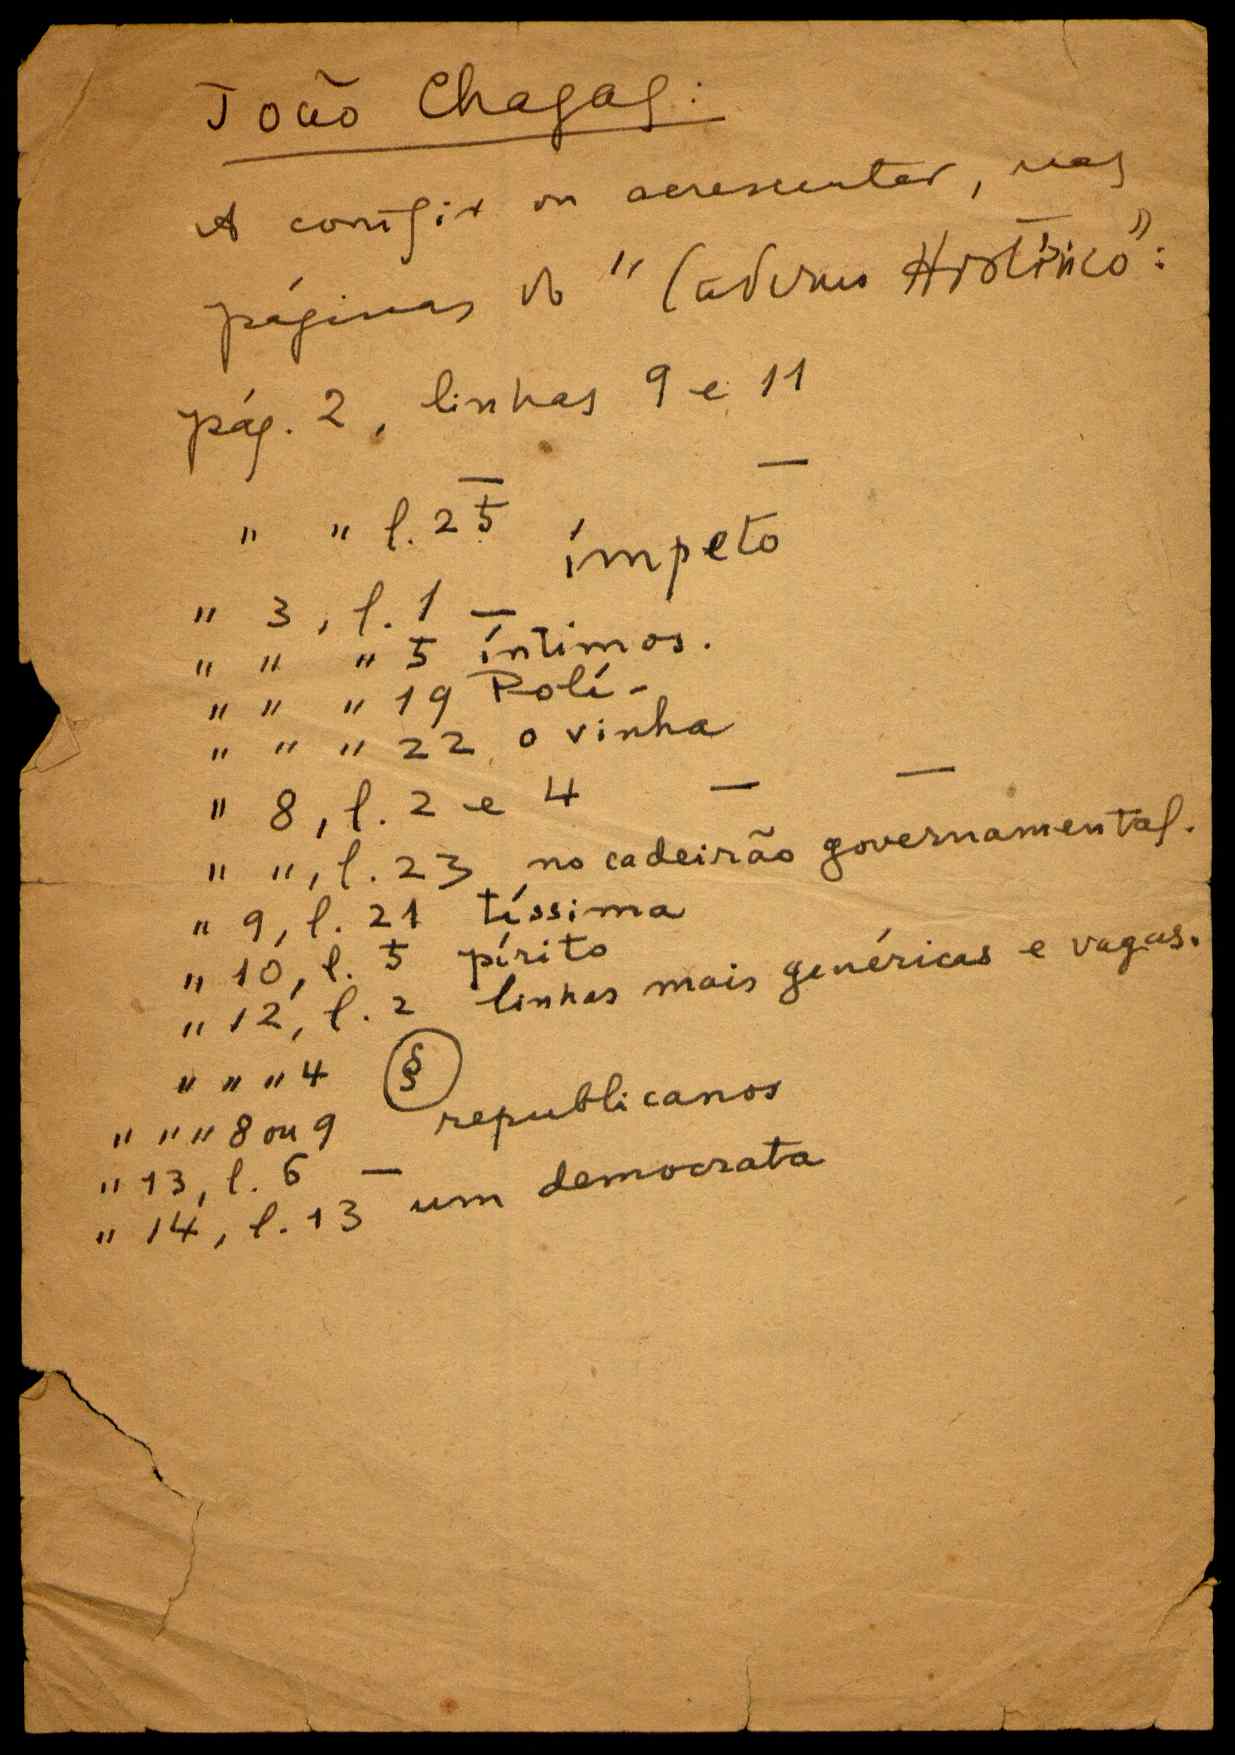 João Chagas:
A corrigir ou acrescentar, nas
páginas do "Caderno Histórico":
pág. 2, linhas 9 e 11 —
" " l. 25 — ímpeto
" 3, l. 1 —
" " " 5 íntimos.
" " " 19 Polí-
" " " 22 o vinha
" 8, l. 2 e 4 — —
" ", l. 23 no cadeirão governamental.
" 9, l. 21 tíssima
" 10, l. 5 pírito
" 12, l. 2 linhas mais genéricas e vagas.
" " " 4 §
" " " 8 ou 9 republicanos
" 13, l. 6 —
" 14, l. 13 um democrata